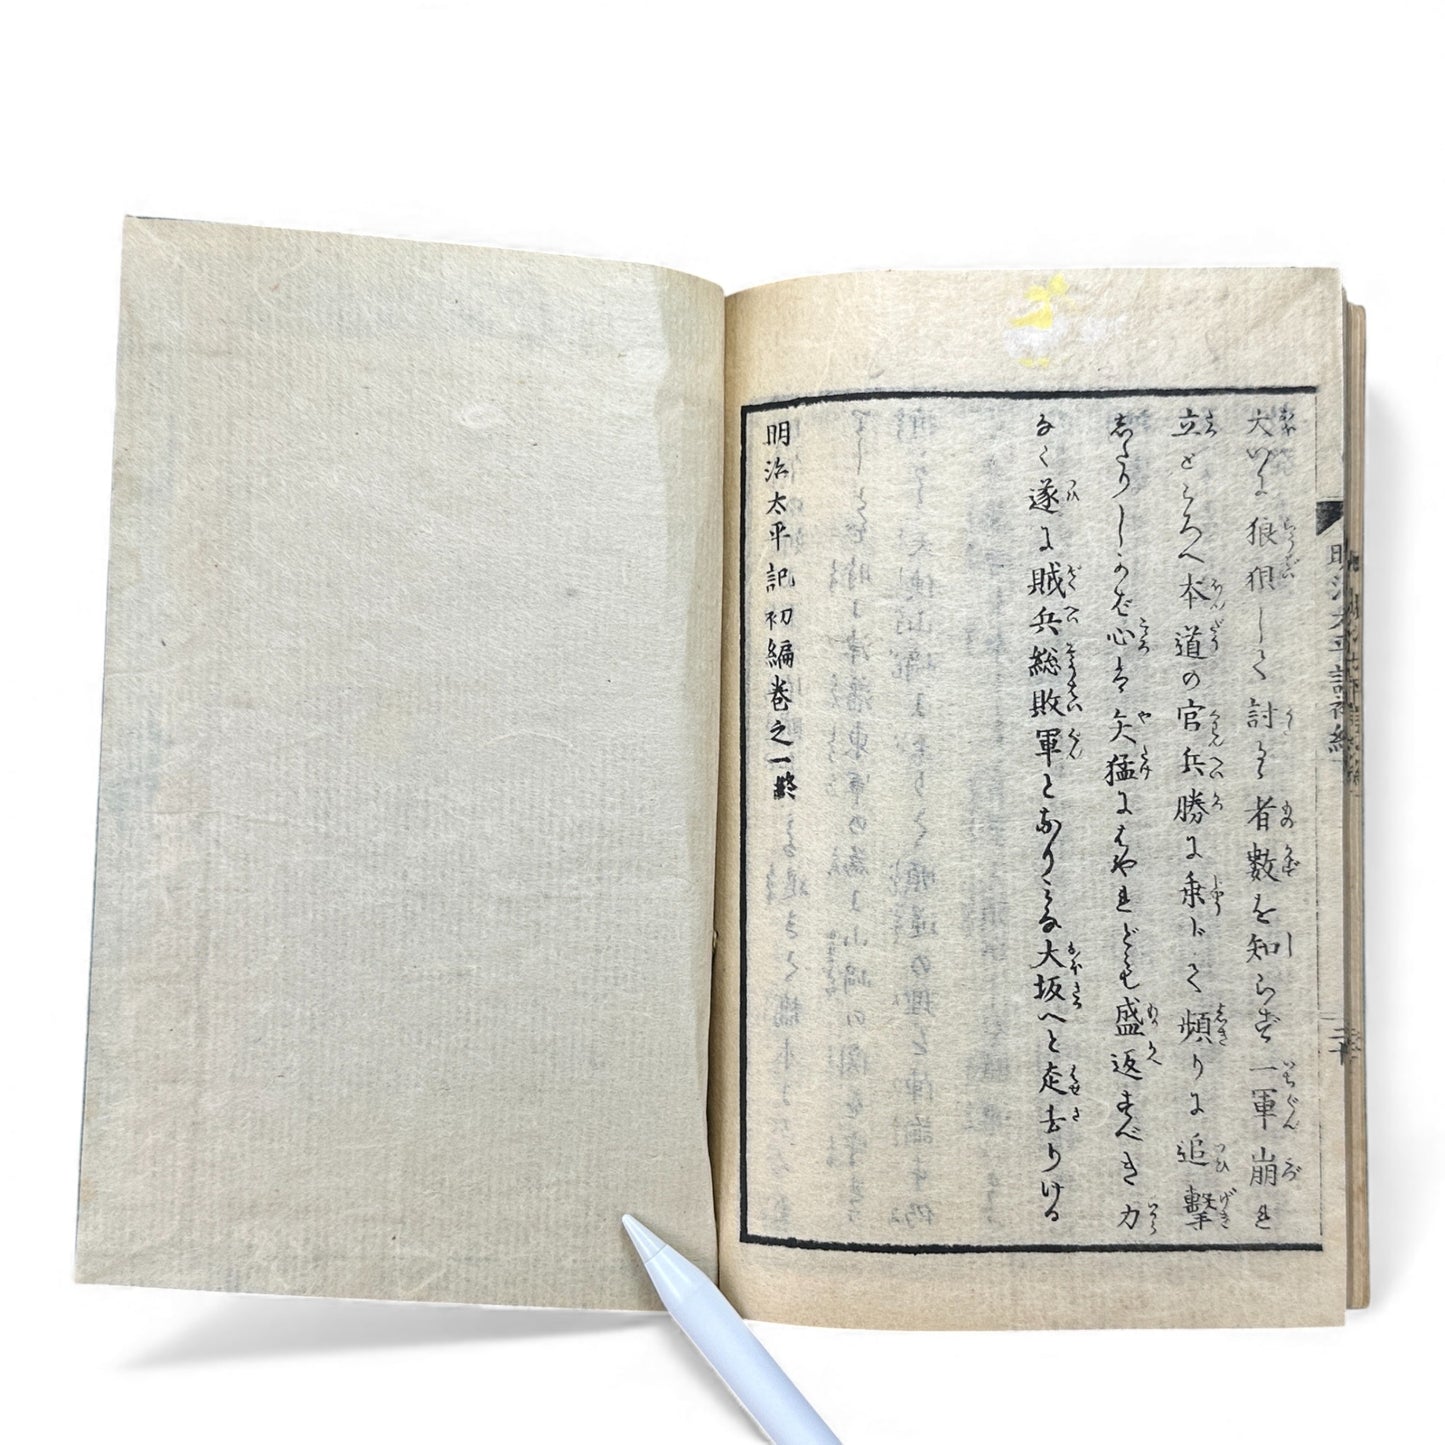 大いに狼狽して討るゝ者数を知らず一軍崩れ
立ところへ本道の官兵勝に乗じて頻りに追撃
したりしかば心は矢猛にはやれども盛返すべき力
なく遂に賊兵総敗軍となりみな大坂へと走去りける
明治太平記初編巻之一終
明治太平記初編
二十